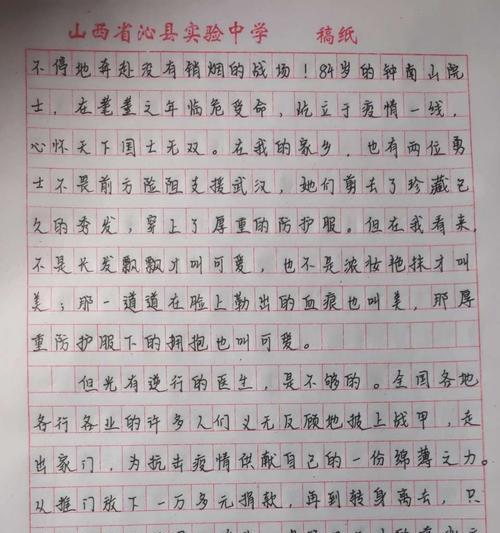 山西省沁县实验中学 稿纸
不停地奔赴没有销烟的战场！84岁的钟南山院
士，在耄耋之年临危受命，屹立于疫情一线，
心怀天下国士无双。在我的家乡，也有两位勇
士不畏前方险阻支援武汉，她们剪去了珍藏已
久的秀发，穿上了厚重的防护服。但在我看来，
不是长发飘飘才叫可爱，也不是浓妆艳抹才叫
美；那一道道在脸上勒出的血痕也叫美，那厚
重防护服下的拥抱也叫可爱。
但光有逆行的医生，是不够的。全国各地
各行各业的许多人们义无反顾地披上战甲，走
出家门，为抗击疫情供献自己的一份绵薄之力。
从推门放下一万多元捐款，再到转身离去，只